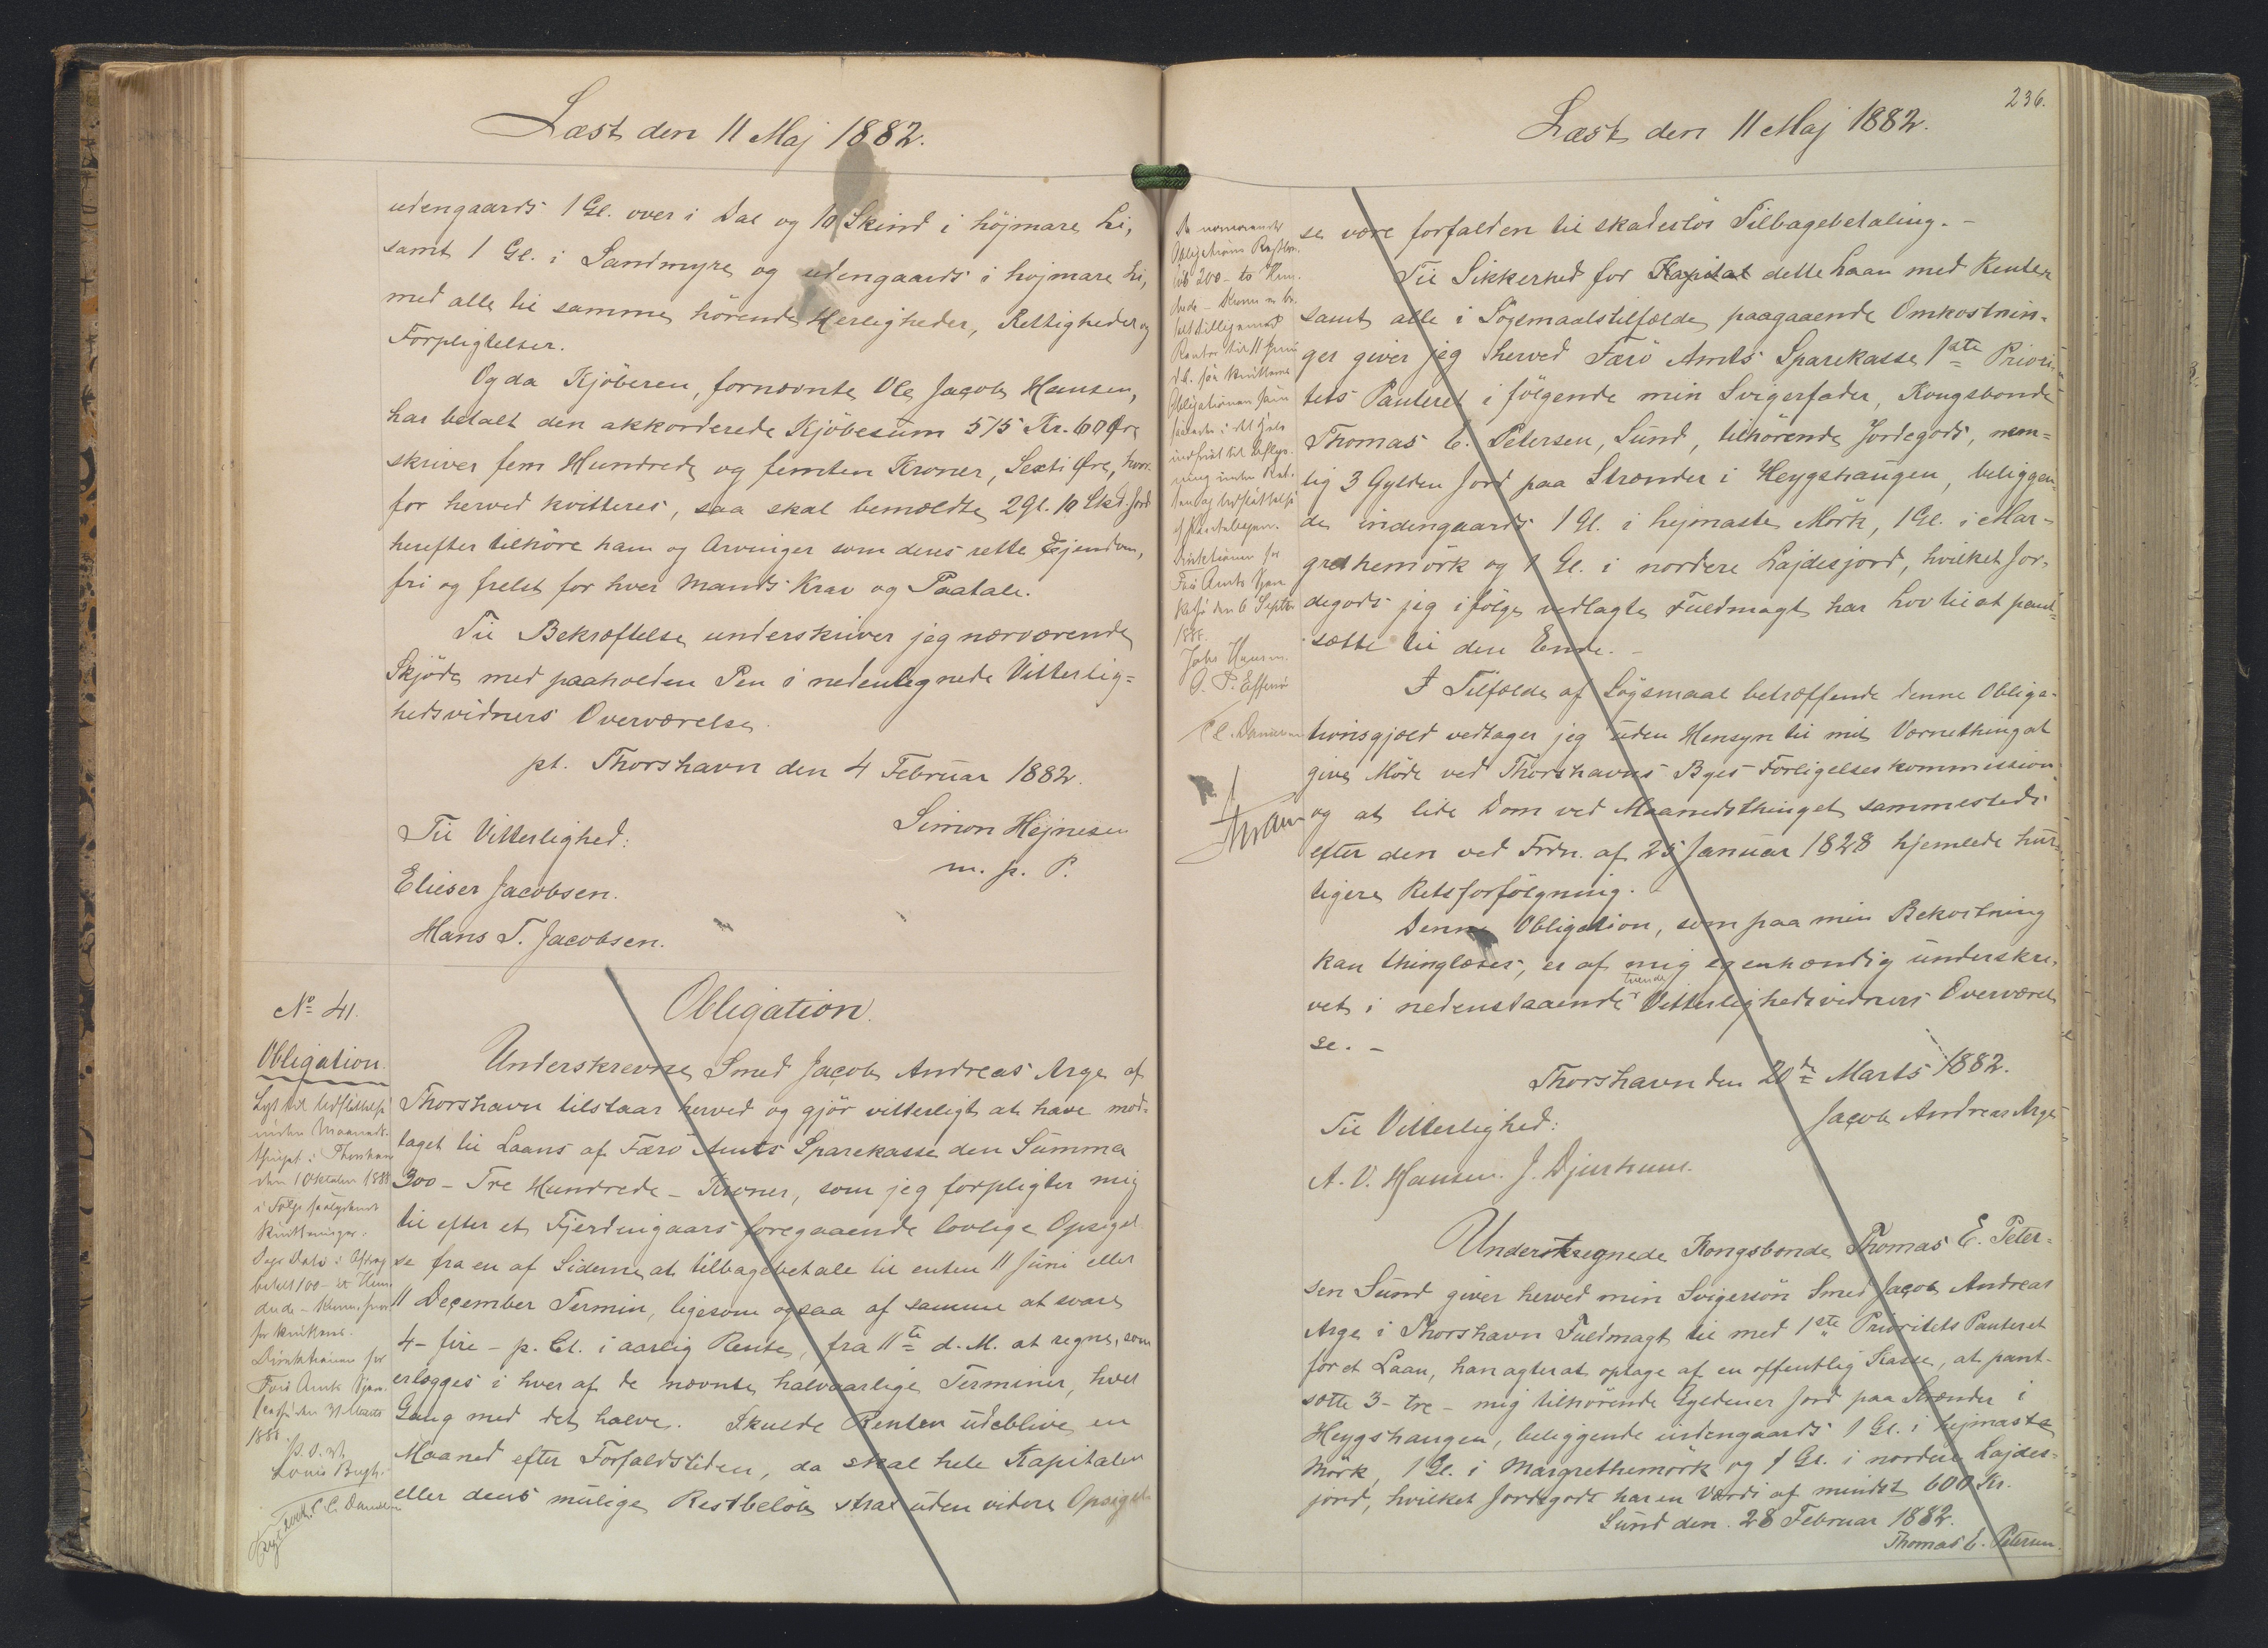 Læst den 11 Maj 1882.
udengaards 1 Gl. over i Dal og 10 Skind i höjmare Li,
samt 1 Gl. i Sandmyre og udengaards i höjmare Li,
med alle til samme hörende Herligheder, Rettigheder og
Forpligtelser.
Og da Kjöberen, fornævnte Ole Jacob Hansen,
har betalt den akkorderede Kjöbesum 515 Kr. 60 Øre
skriver fem Hundrede og femten Kroner, Sexti Øre, hvor-
for herved kvitteres, saa skal bemældte 2 Gl. 10 Skd. Jord
herefter tilhöre ham og Arvinger som deres rette Ejendom,
fri og frelst for hver Mands Krav og Paatale.
Til Bekræftelse underskriver jeg nærværende
Skjöde med paaholden Pen i nedentegnede Vitterlig=
hedsvidners Overværelse.
pt. Thorshavn den 4 Februar 1882.
Simon Hejnesen
m. p. P.
Til Vitterlighed:
Elieser Jacobsen.
Hans T. Jacobsen.
No 41.
Obligation.
Lyst til Udslettelse
inden Maaneds-
thinget i Thorshavn
den 1 Oktober 1888
i Følge saalydende
Kvitteringer.
Dags Dato i Afdrag
betalt 100 - Et Hun-
drede - Kroner, hvor-
for kvitteres.
Direktionen for
Færö Amts Spare-
kasse den 31 Marts
188
Louis Bergh.
C. C. Danielsen
Obligation.
Underskrevne Smed Jacob Andreas Arge af
Thorshavn tilstaar herved og gjör vitterligt at have mod=
taget til Laans af Færö Amts Sparekasse den Summa
300 - Tre Hundrede - Kroner, som jeg forpligter mig
til efter et Fjerdingaars foregaaende lovlige Opsigel
se fra en af Siderne at tilbagebetale til enten 11 Juni eller
11 December Termin, ligesom ogsaa af samme at svare
4 - fire - p. Ct. i aarlig Rente, fra 11te d. M. at regne, som
erlægges i hver af de nævnte halvaarlige Terminer, hver
Gang med det halve. Skulde Renten udeblive en
Maaned efter Forfaldstiden, da skal hele Kapitalen
eller dens mulige Restbelöb strax uden videre Opsigel
236.
Læst den 11 Maj 1882.
Obligations Restbe-
löb 200 - to Hun-
drede - Kroner er be-
talt tilligemed
Renter til 11 Juni
Direktionen for
Færö Amts Spare
kasse den 6 Septbr
1888.
C. C. Danielsen
se være forfalden til skadeslös Tilbagebetaling. -
Til Sikkerhed for Kapital dette Laan med Renter
samt alle i Sögsmaalstilfælde paagaaende Omkostnin-
ger giver jeg herved Færö Amts Sparekasse 1ste Priori-
tets Panteret i fölgende min Svigerfader, Kongsbonde
Thomas E. Petersen, Sund, tilhörende Jordegods, nem=
lig 3 Gylden Jord paa Strænder i Heygshaugen, beliggen-
de indengaards 1 Gl. i hejmaste Mörk, 1 Gl. i Mar-
grethemörk og 1 Gl. i nordere Lajdesjord, hvilket Jor-
degods jeg ifölge vedlagte Fuldmagt har Lov til at pant-
sætte til den Ende. -
I Tilfælde af Sögsmaal betræffende denne Obliga-
tionsgjæld vedtager jeg uden Hensyn til mit Værnething at
give Möde ved Thorshavns Byes Forligelseskommission
og at lide Dom ved Maanedsthinget sammesteds
efter den ved Frdn. af 25 Januar 1828 hjemlede hur-
tigere Retsforfölgning.
Denne Obligation, som paa min Bekostning
kan thinglæses, er af mig egenhændig underskre-
tvende
vet i nedenstaaende Vitterlighedsvidners Overværel
se. -
Thorshavn den 20de Marts 1882.
Jacob Andreas Arge
Til Vitterlighed:
A. V. Hansen. J. Djurhuus.
Undertegnede Kongsbonde Thomas E. Peter=
sen Sund giver herved min Svigersön Smed Jacob Andreas
Arge i Thorshavn Fuldmagt til med 1ste Prioritets Panteret
for et Laan, han agter at optage af en offentlig Kasse, at pant-
sætte 3 - tre - mig tilhörende Gyldener Jord paa Strænder i
Heygshaugen, beliggende indengaards 1 Gl. i hejmaste
Mörk, 1 Gl. i Margrethemörk og 1 Gl. i nordere Lajdes-
jord, hvilket Jordegods har en Værdi af mindst 600 Kr.
Sund den 28 Februar 1882.
Thomas E. Petersen.